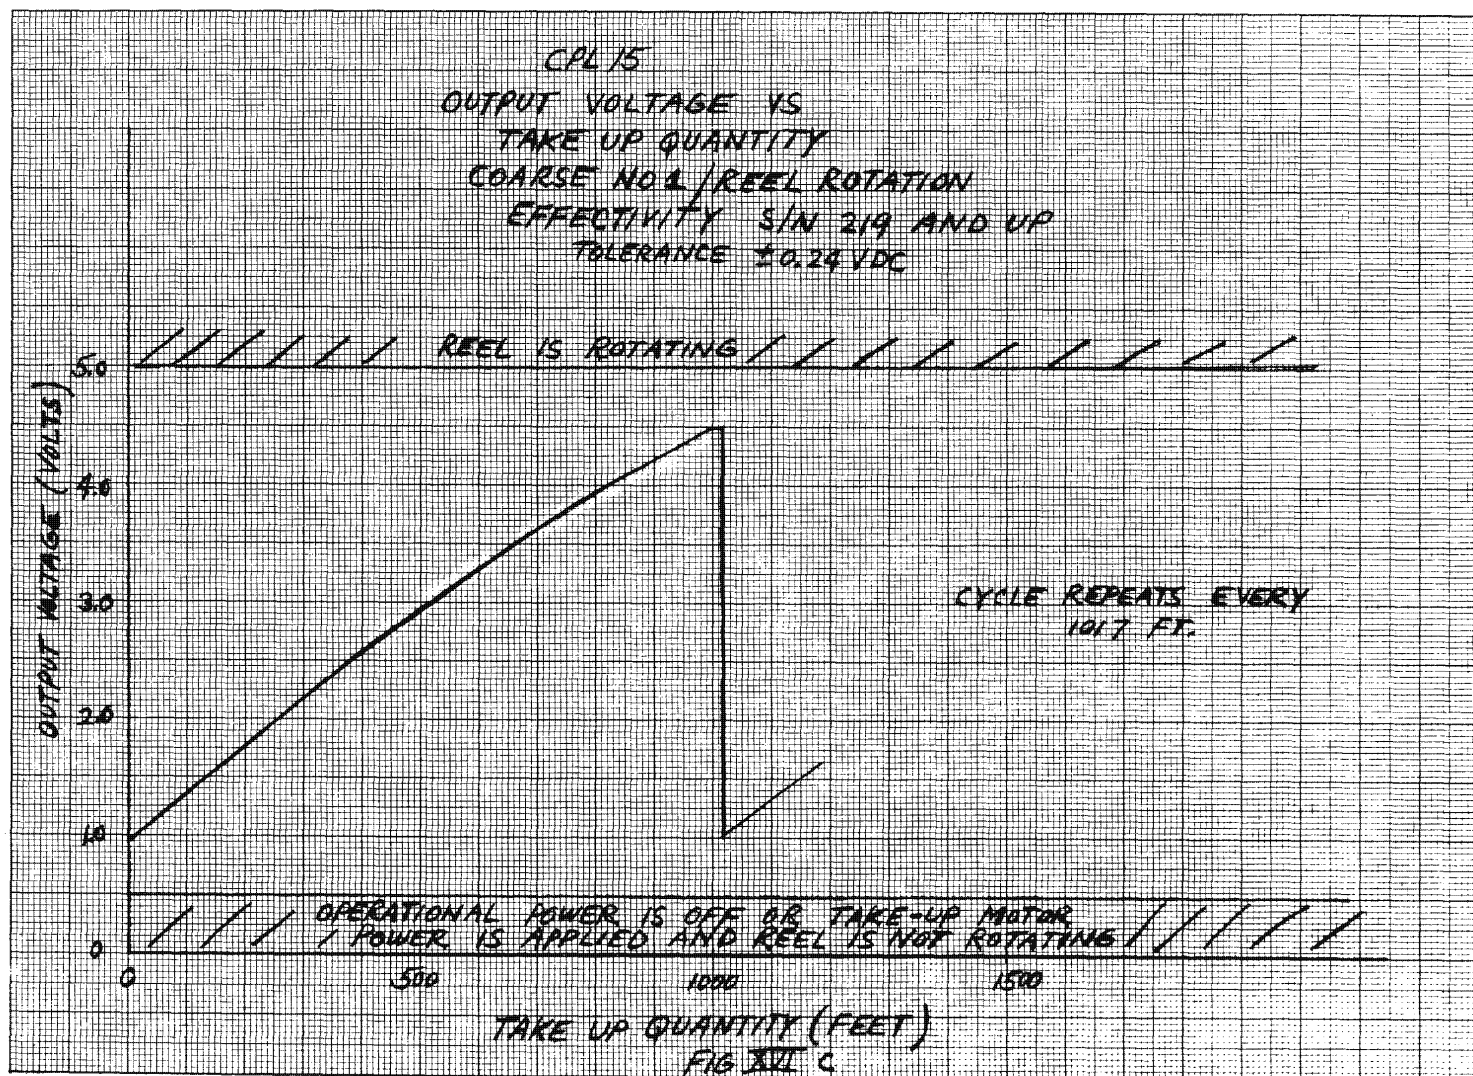 CPL 15
OUTPUT VOLTAGE VS
TAKE UP QUANTITY
COARSE NO 1/REEL ROTATION
EFFECTIVITY S/N 219 AND UP
TOLERANCE ±0.24 VDC
REEL IS ROTATING
5.0
4.0
3.0
2.0
1.0
0
OUTPUT VOLTAGE (VOLTS)
CYCLE REPEATS EVERY
1017 FT.
OPERATIONAL POWER IS OFF OR TAKE-UP MOTOR
POWER IS APPLIED AND REEL IS NOT ROTATING
0 500 1000 1500
TAKE UP QUANTITY (FEET)
FIG XVI C